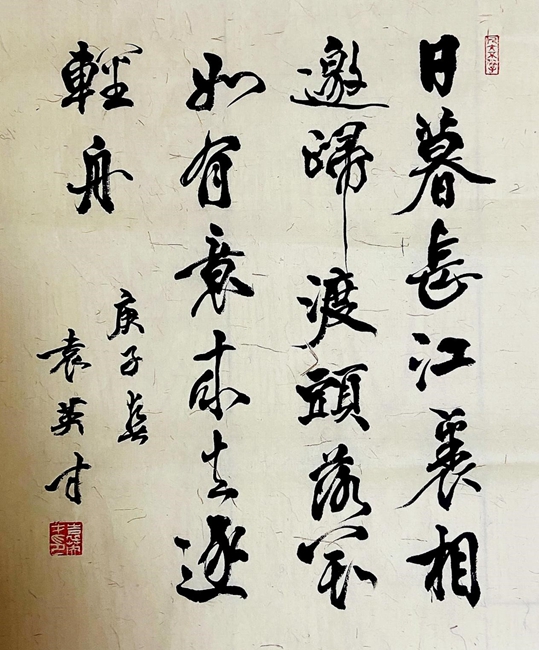 日暮長江裏相
邀歸渡頭落花
如有意來去逐
輕舟
庚子
袁英才
袁英才印